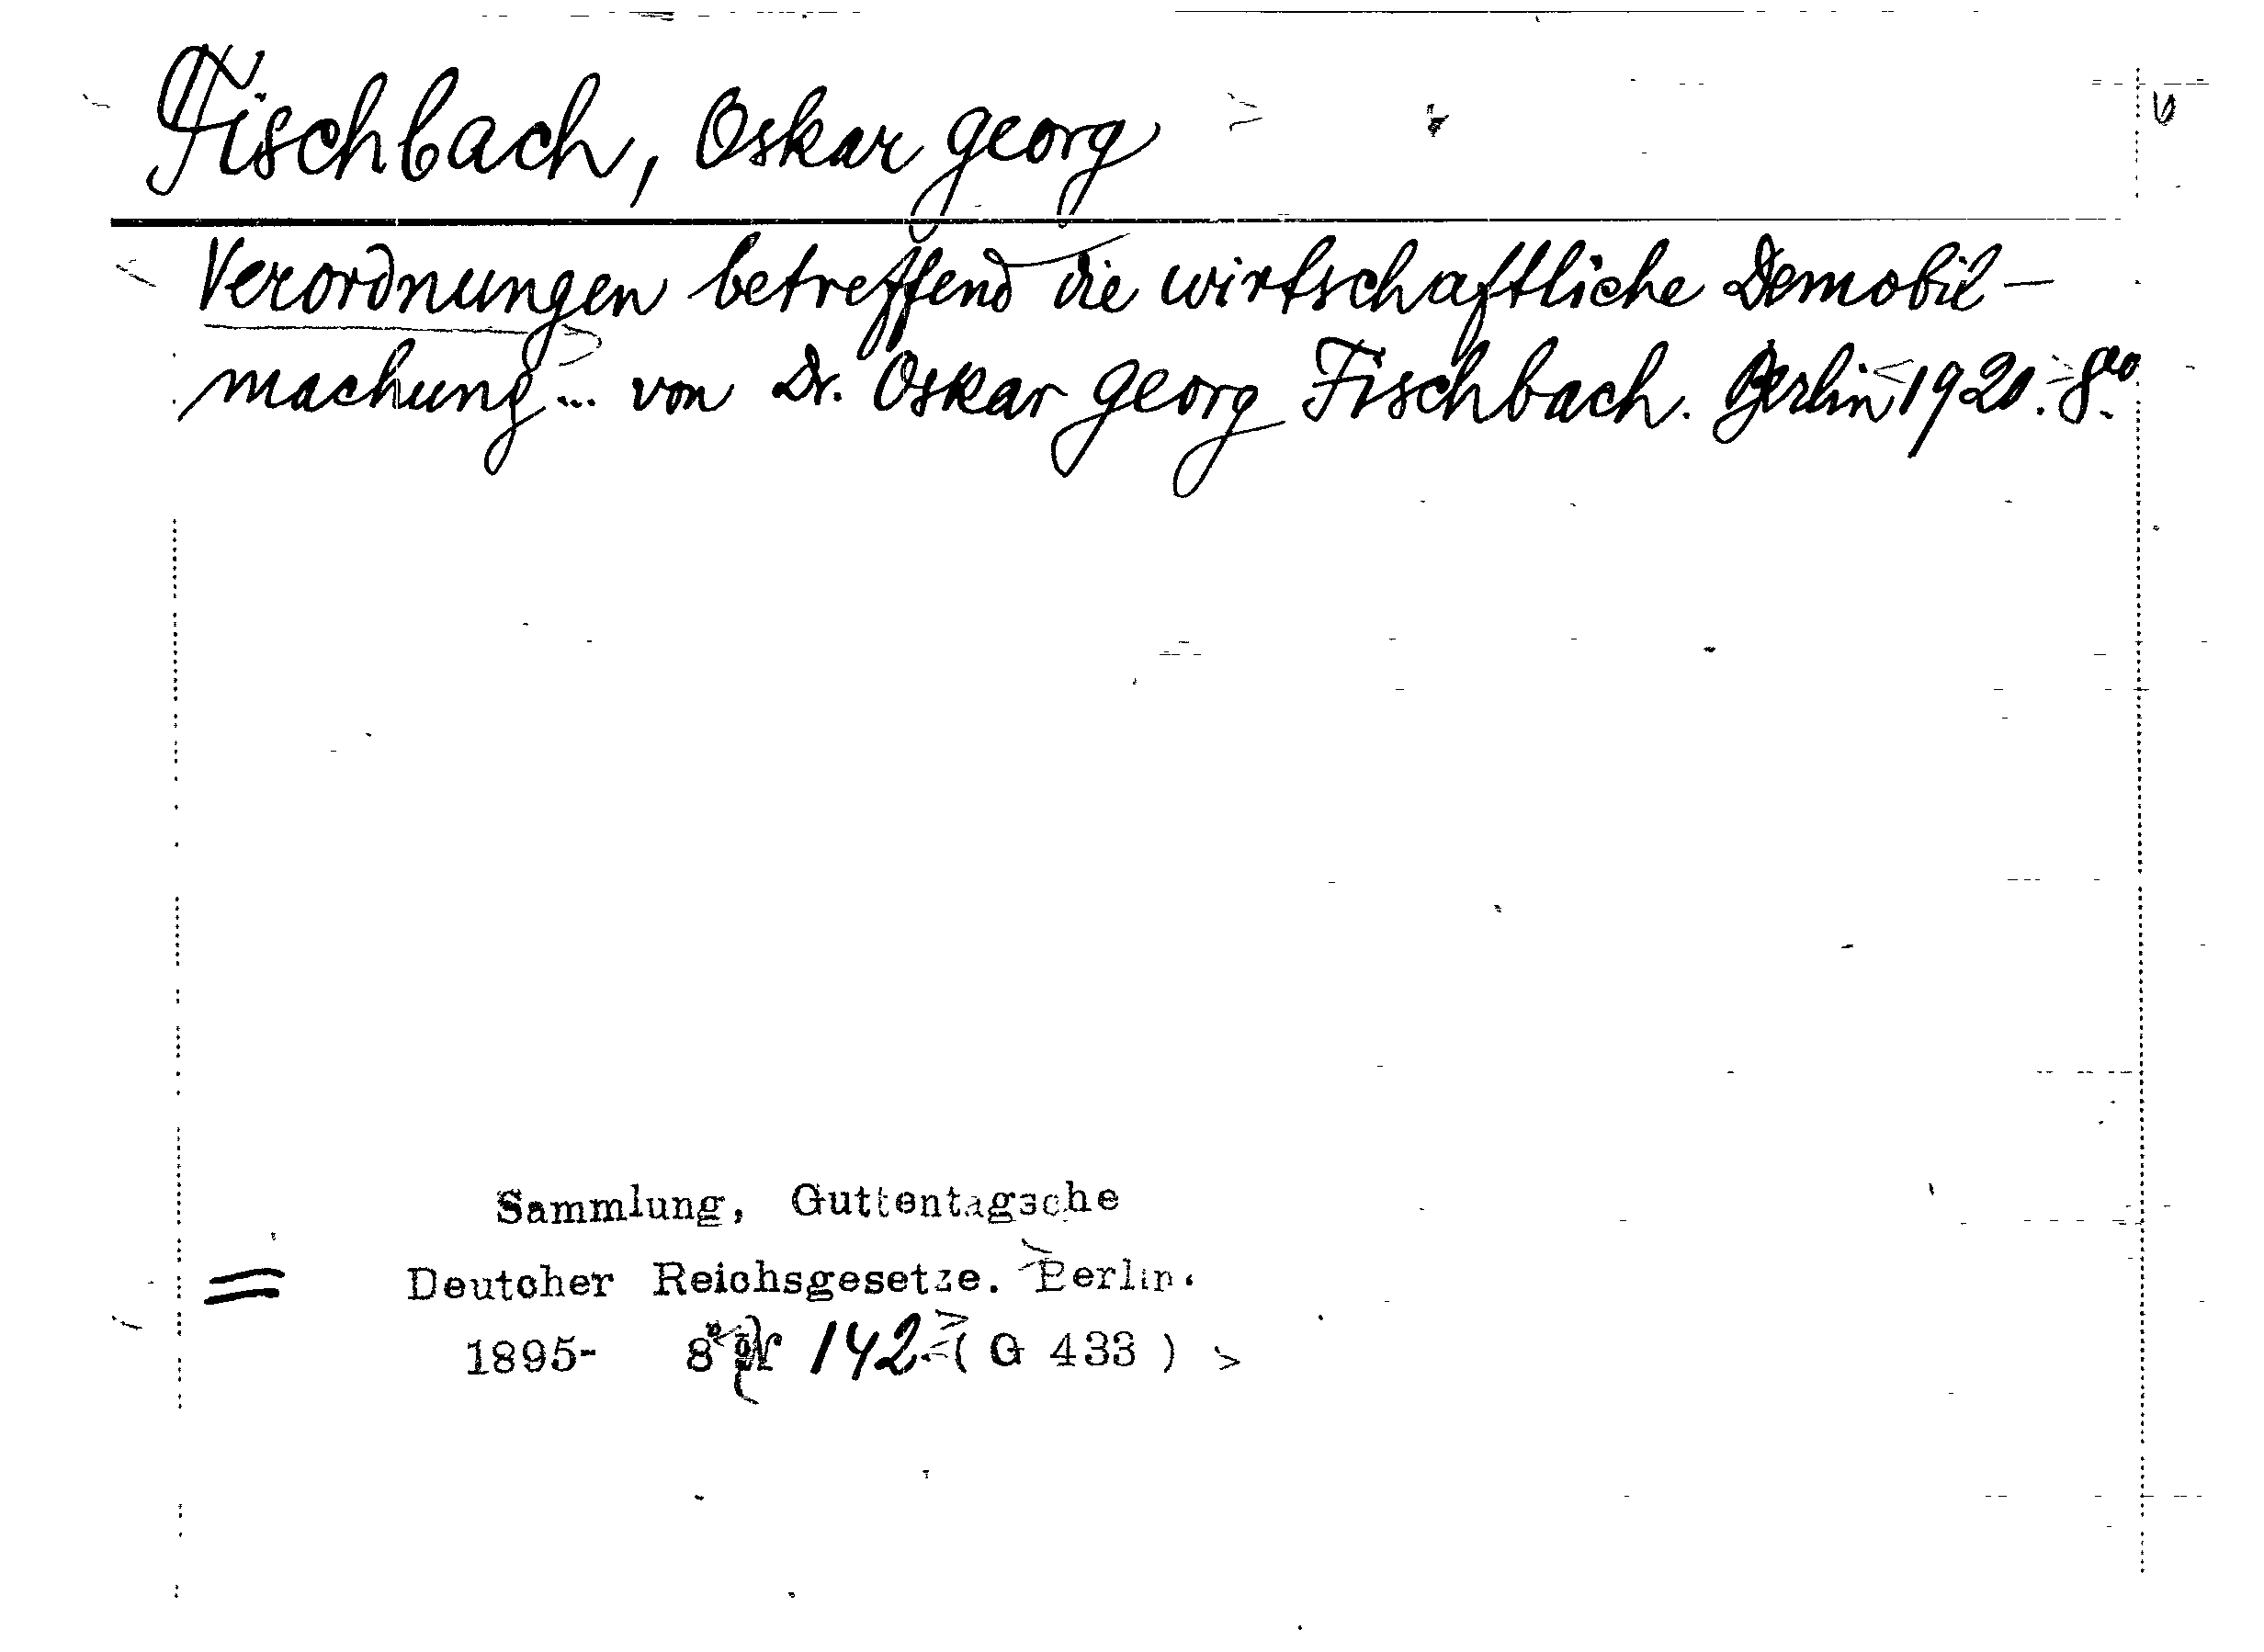 Fischbach, Oskar Georg
Verordnungen betreffend die wirtschaftliche Demobil-
machung... von Dr. Oskar Georg Fischbach. Berlin 1920. 8vo.
Sammlung, Guttentagsche
= Deutcher Reichsgesetze. Berlin.
1895- 8° 142. ( G 433 )